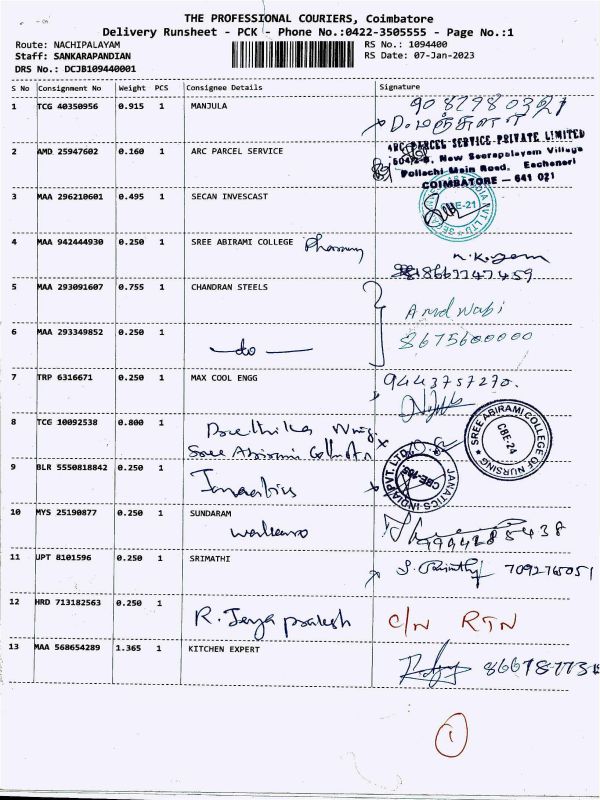 THE PROFESSIONAL COURIERS, Coimbatore
Delivery Runsheet - PCK - Phone No.:0422-3505555 - Page No.:1
Route: NACHIPALAYAM RS No.: 1094400
Staff: SANKARAPANDIAN RS Date: 07-Jan-2023
DRS No.: DCJB109440001
S No Consignment No Weight PCS Consignee Details Signature
1 TCG 40350956 0.915 1 MANJULA
D. மஞ்சுளா
2 AMD 25947602 0.160 1 ARC PARCEL SERVICE
ARC PARCEL SERVICE PRIVATE LIMITED
New Seerapalayam Village
Pollachi Main Road, Eachanari
COIMBATORE - 641 021
3 MAA 296210601 0.495 1 SECAN INVESCAST
CBE-21
4 MAA 942444930 0.250 1 SREE ABIRAMI COLLEGE Pharmacy
5 MAA 293091607 0.755 1 CHANDRAN STEELS
6 MAA 293349852 0.250 1 —do—
8675600000
7 TRP 6316671 0.250 1 MAX COOL ENGG 9443757270.
8 TCG 10092538 0.800 1
Sree Abirami
SREE ABIRAMI COLLEGE OF NURSING
CBE-24
9 BLR 5550818842 0.250 1
JANATICS INDIA PVT. LTD.
10 MYS 25190877 0.250 1 SUNDARAM
11 UPT 8101596 0.250 1 SRIMATHI 7092765051
12 HRD 713182563 0.250 1 R. Jeya prakash C/N RTN
13 MAA 568654289 1.365 1 KITCHEN EXPERT
1